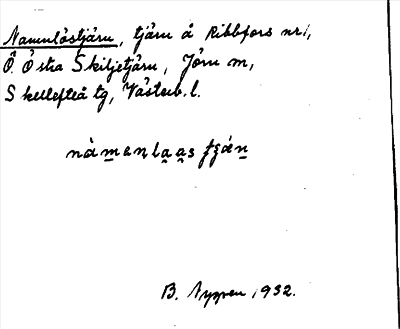 Namnlöstjärn, tjärn å Ribbfors nr 1,
Ö. Östra Skiljetjärn, Jörn sn,
Skellefteå tg, Västerb. l.
nàmenlaas
B. Nygren 1932.